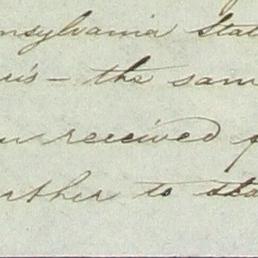 nnsylvania Stat
is - the sam
u received f
rther to sta